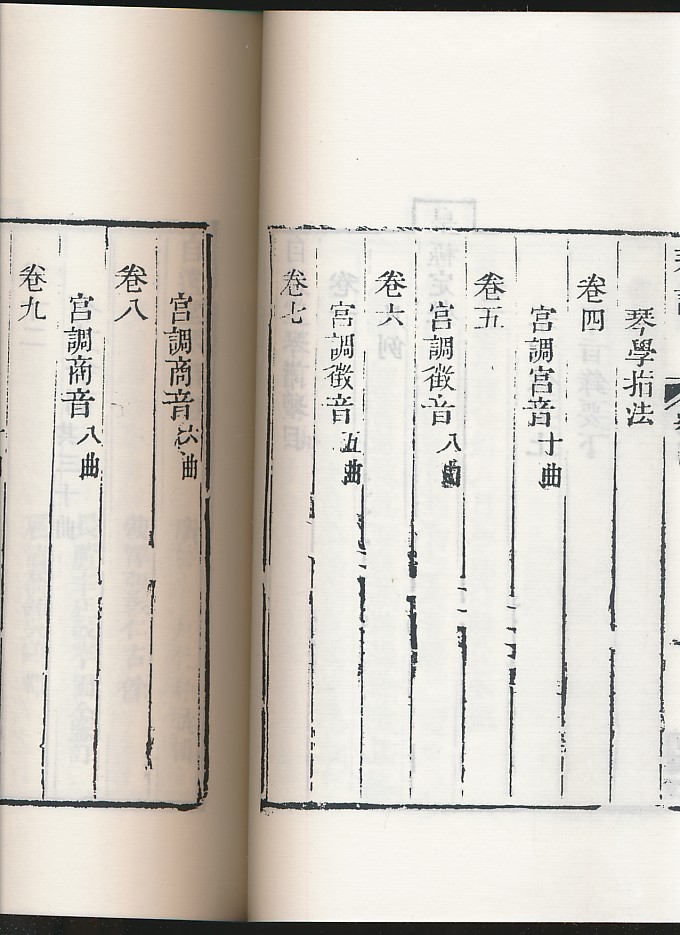 琴學指法
卷四
宮調宮音十曲
卷五
宮調徵音八曲
卷六
宮調徵音五曲
卷七
宮調商音六曲
卷八
宮調商音八曲
卷九